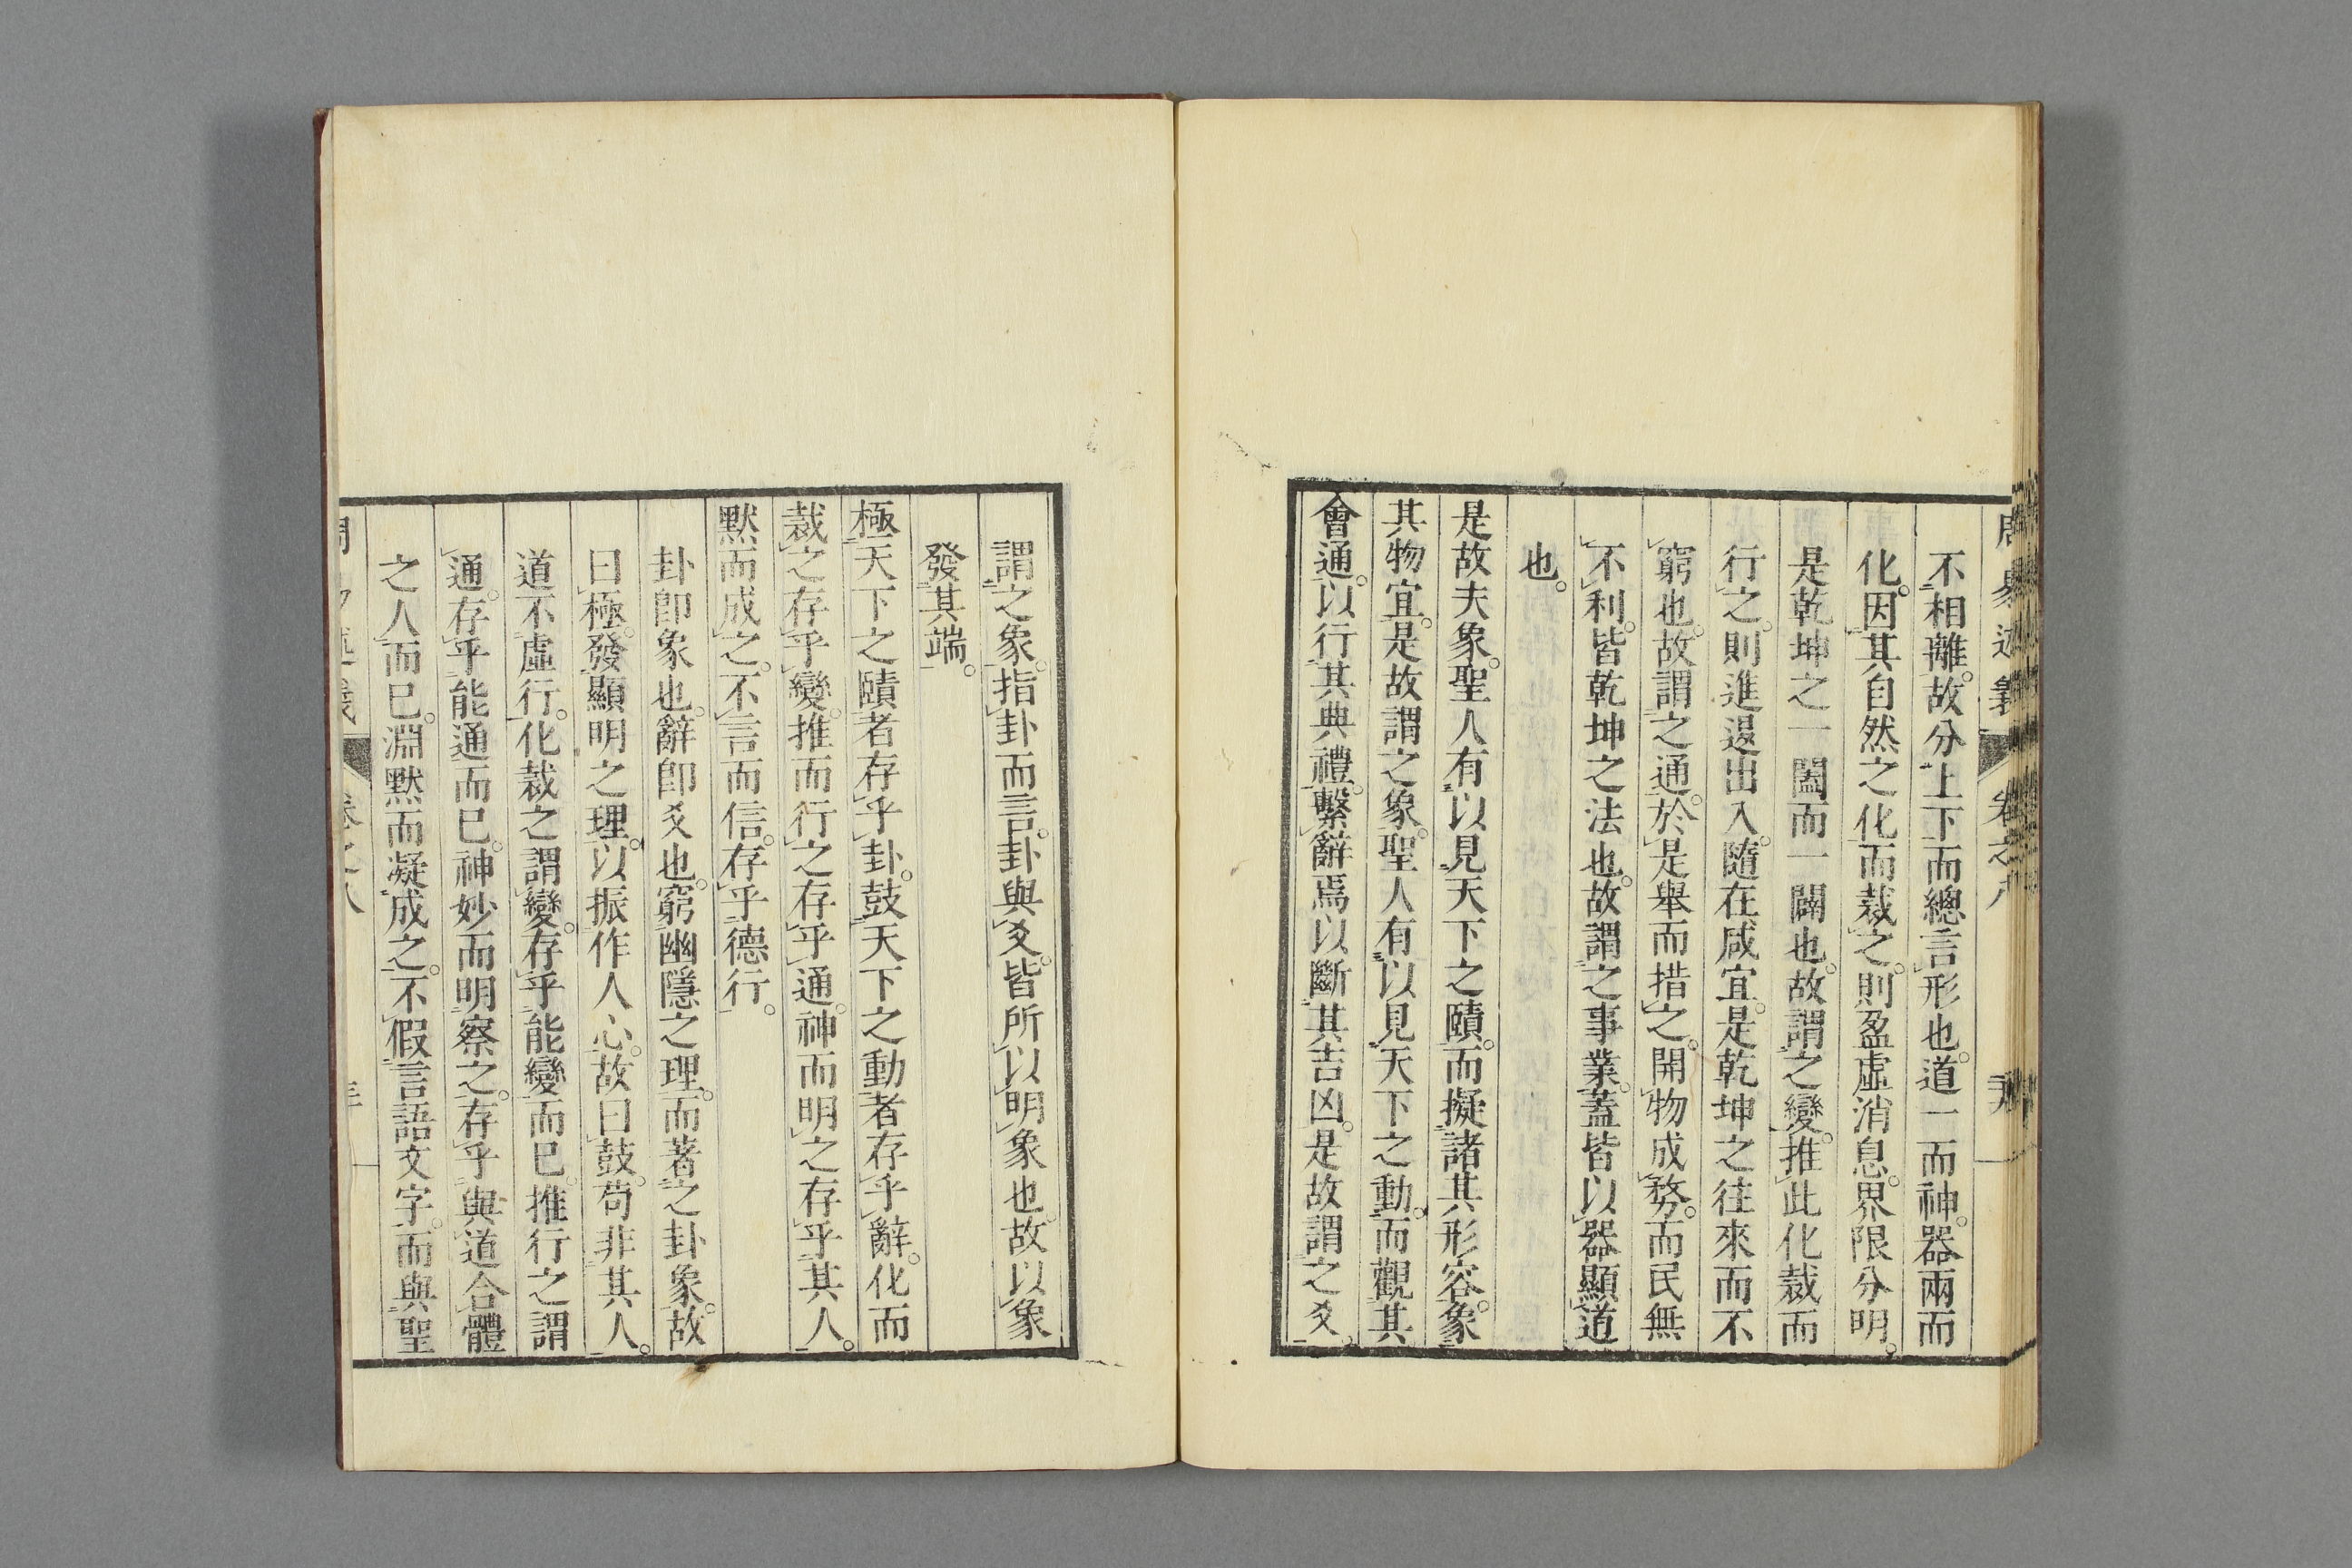 周易述義 卷之八
不相離。故分上下而總言形也。道一而神。器兩而
化。因其自然之化而裁之。則盈虛消息。界限分明。
是乾坤之一闔而一闢也。故謂之變。推此化裁而
行之。則進退出入。隨在咸宜。是乾坤之往來而不
窮也。故謂之通。於是舉而措之。開物成務。而民無
不利。皆乾坤之法也。故謂之事業。蓋皆以器顯道
也。
是故夫象。聖人有以見天下之賾。而擬諸其形容。象
其物宜。是故謂之象。聖人有以見天下之動。而觀其
會通。以行其典禮。繫辭焉以斷其吉凶。是故謂之爻。
謂之象。指卦而言。卦與爻。皆所以明象也。故以象
發其端。
極天下之賾者存乎卦。鼓天下之動者存乎辭。化而
裁之存乎變。推而行之存乎通。神而明之存乎其人。
默而成之。不言而信。存乎德行。
卦卽象也。辭卽爻也。窮幽隱之理。而著之卦象。故
曰極。發顯明之理。以振作人心。故曰鼓。苟非其人。
道不虛行。化裁之謂變。存乎能變而已。推行之謂
通。存乎能通而已。神妙而明察之。存乎與道合體
之人而已。淵默而凝成之。不假言語文字。而與聖
卷之八